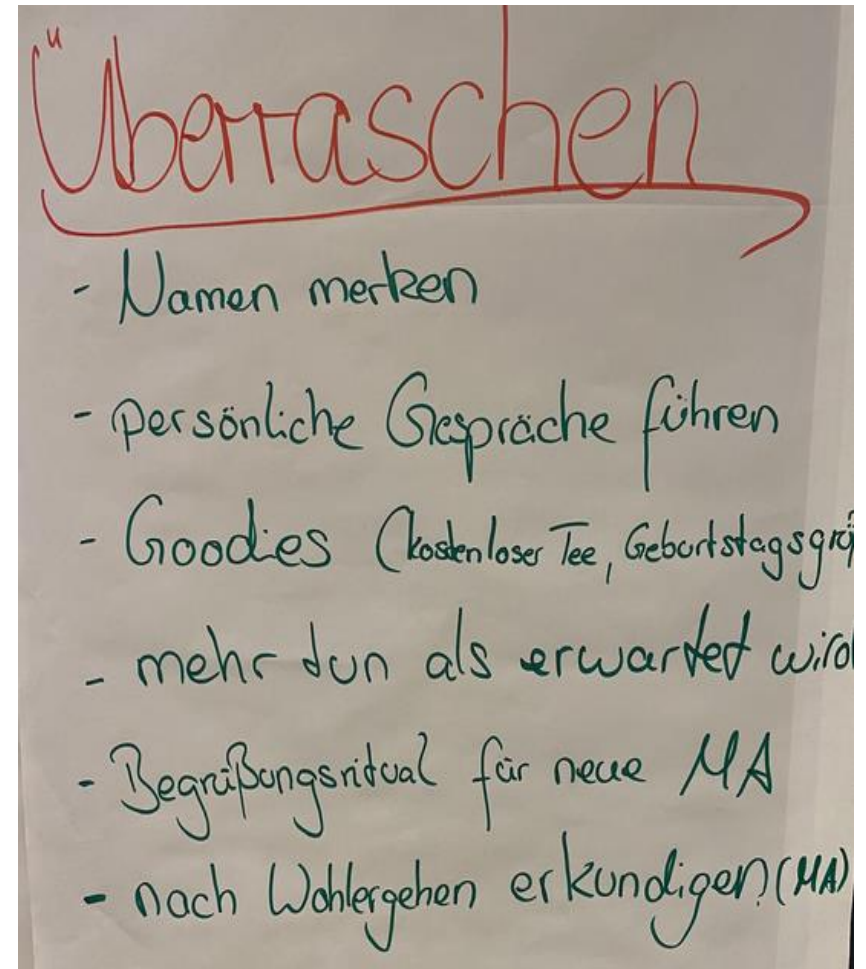 Überraschen
- Namen merken
- persönliche Gespräche führen
- Goodies (kostenloser Tee, Geburtstagsgrü
- mehr tun als erwartet wird
- Begrüßungsritual für neue MA
- nach Wohlergehen erkundigen (MA)